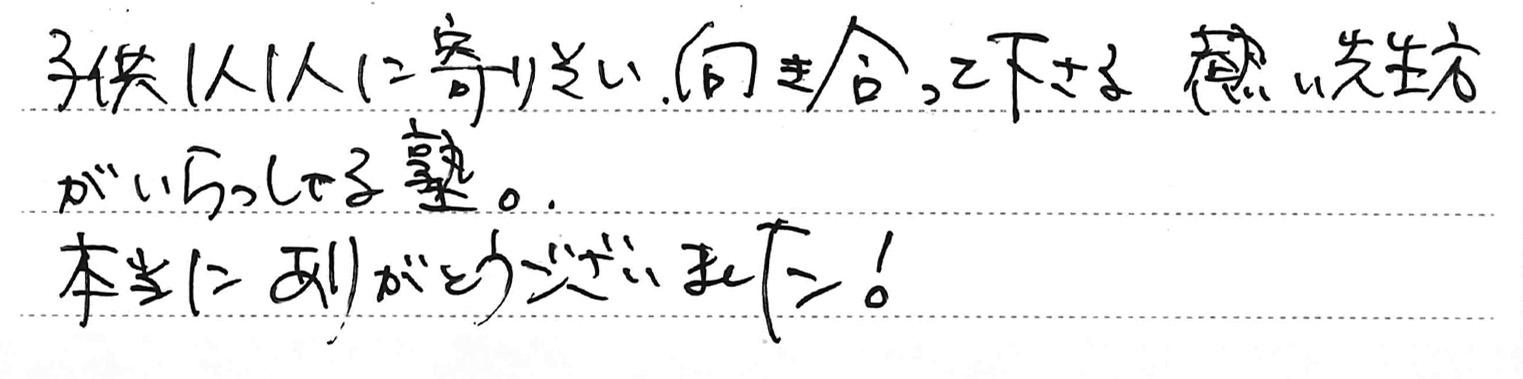 子供1人1人に寄りそい、向き合って下さる 熱い先生方
がいらっしゃる塾。
本当に ありがとうございました!